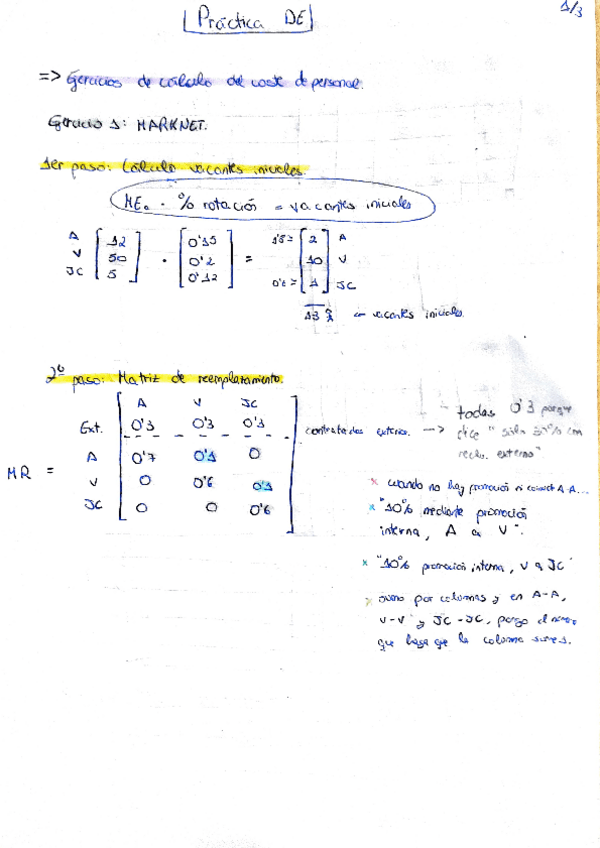 Práctica DE
1/3
=> Ejercicios de cálculo del coste de personal.
Ejercicio 1: MARKNET.
1er paso: Cálculo vacantes iniciales.
ME₀ · % rotación = vacantes iniciales
A [12] [0'15] 1'8= [2] A
V [50] · [0'2] = [10] V
JC [5] [0'12] 0'6= [1] JC
13 ← vacantes iniciales.
2º paso: Matriz de reemplazamiento.
A V JC
Ext. 0'3 0'3 0'3 contratados externos. → todas 0'3 porque dice "30% con reclu. externo"
MR =
A 0'7 0'1 0
V 0 0'6 0'1
JC 0 0 0'6
x cuando no hay promoción ni A-A...
x "10% mediante promoción
interna, A a V".
x "10% promoción interna, V a JC"
x sumo por columnas y en A-A,
V-V y JC-JC, pongo el número
que haga que la columna sume 1.